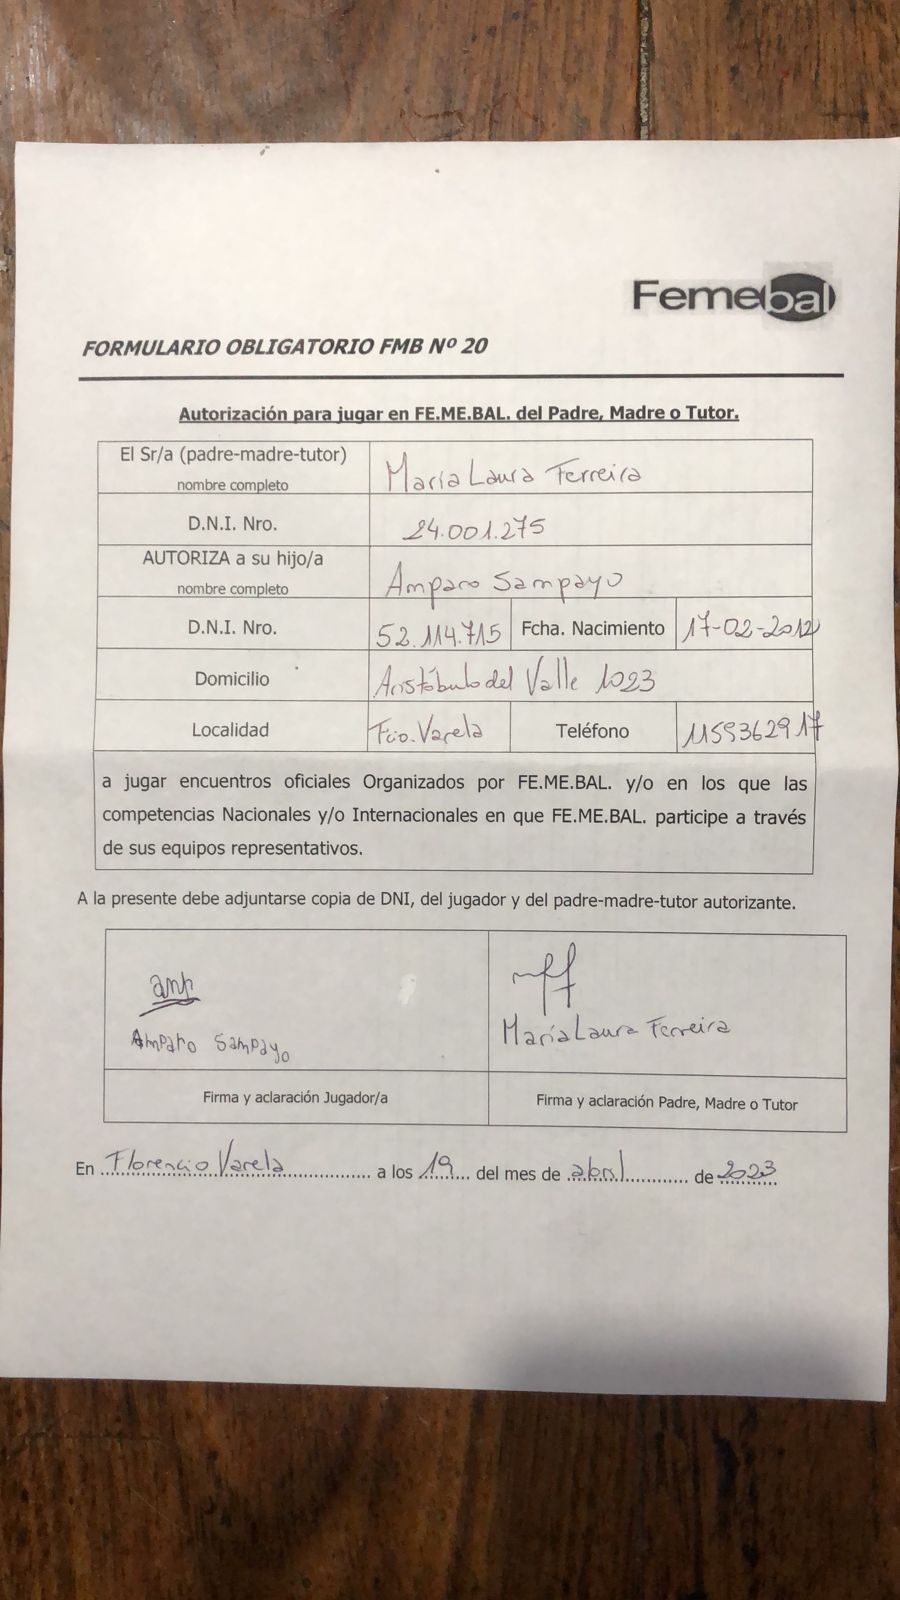 Femebal
FORMULARIO OBLIGATORIO FMB Nº 20
Autorización para jugar en FE.ME.BAL. del Padre, Madre o Tutor.
El Sr/a (padre-madre-tutor) nombre completo María Laura Ferreira
D.N.I. Nro. 24.001.275
AUTORIZA a su hijo/a nombre completo Amparo Sampayo
D.N.I. Nro. 52.114.715 Fcha. Nacimiento 17-02-2012
Domicilio Aristóbulo del Valle 1023
Localidad Fcio. Varela Teléfono 1159362917
a jugar encuentros oficiales Organizados por FE.ME.BAL. y/o en los que las
competencias Nacionales y/o Internacionales en que FE.ME.BAL. participe a través
de sus equipos representativos.
A la presente debe adjuntarse copia de DNI, del jugador y del padre-madre-tutor autorizante.
Amparo Sampayo
María Laura Ferreira
Firma y aclaración Jugador/a
Firma y aclaración Padre, Madre o Tutor
En Florencio Varela a los 19 del mes de abril de 2023